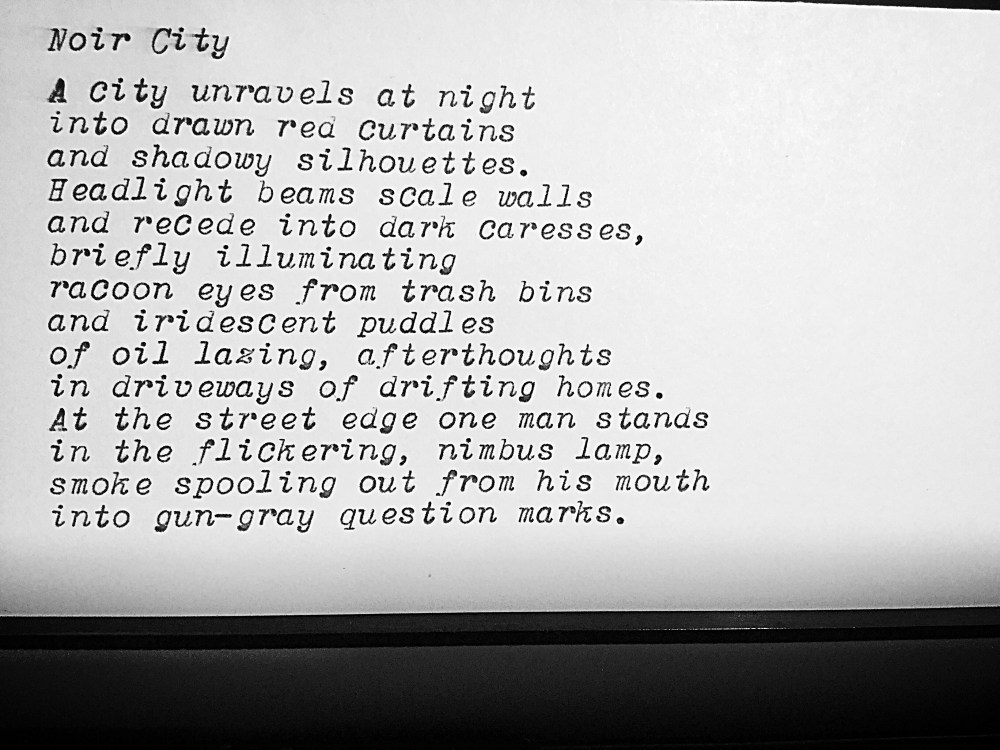 Noir City
A city unravels at night
into drawn red curtains
and shadowy silhouettes.
Headlight beams scale walls
and recede into dark caresses,
briefly illuminating
racoon eyes from trash bins
and iridescent puddles
of oil lazing, afterthoughts
in driveways of drifting homes.
At the street edge one man stands
in the flickering, nimbus lamp,
smoke spooling out from his mouth
into gun-gray question marks.